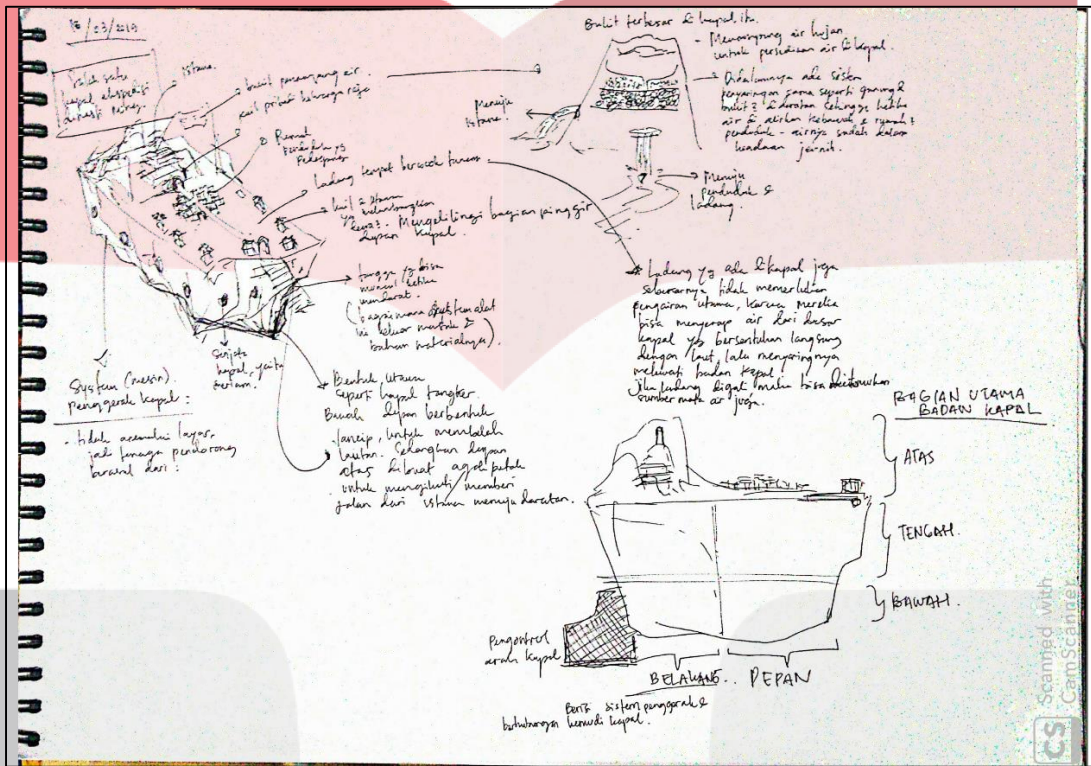 15/03/2019
Salah satu
kapal ekspedisi
istana.
bukit penampung air.
kuil pribadi keluarga raja
Rumah
penduduk yg
ladang tempat bercocok tanam
kuil 2 utama
yg melambangkan
dewa2. Mengelilingi bagian pinggir
depan kapal.
tangga yg bisa
muncul ketika
mendarat.
(bagaimana sistem alat
ini keluar masuk &
bahan materialnya).
Senjata
kapal, yaitu
meriam.
System (mesin)
penggerak kapal:
- tidak memakai layar,
jadi tenaga pendorong
berasal dari:
Bentuk utama
seperti kapal tangker.
Bawah depan berbentuk
lancip, untuk membelah
lautan. Sedangkan depan
atas dibuat agak petak
untuk mengikuti/memberi
jalan dari istana menuju daratan.
Bukit terbesar di kapal itu.
- Menampung air hujan
untuk persediaan air di kapal.
Didalamnya ada sistem
penyaringan sama seperti gunung &
bukit2 di daratan sehingga ketika
air di alirkan kebawah & rumah2
penduduk - airnya sudah dalam
keadaan jernih.
Menuju
istana.
Menuju
penduduk &
ladang.
* Ladang yg ada di kapal juga
sebenarnya tidak memerlukan
pengairan utama, karena mereka
bisa menyerap air dari dasar
kapal yg bersentuhan langsung
dengan laut, lalu menyaringnya
melewati badan kapal.
jika ladang digali maka bisa ditemukan
sumber mata air juga.
BAGIAN UTAMA
BADAN KAPAL
ATAS
TENGAH.
BAWAH.
Pengontrol
arah kapal
BELAKANG.. DEPAN
Berisi sistem penggerak &
berhubungan kemudi kapal.
CS Scanned with
CamScanner